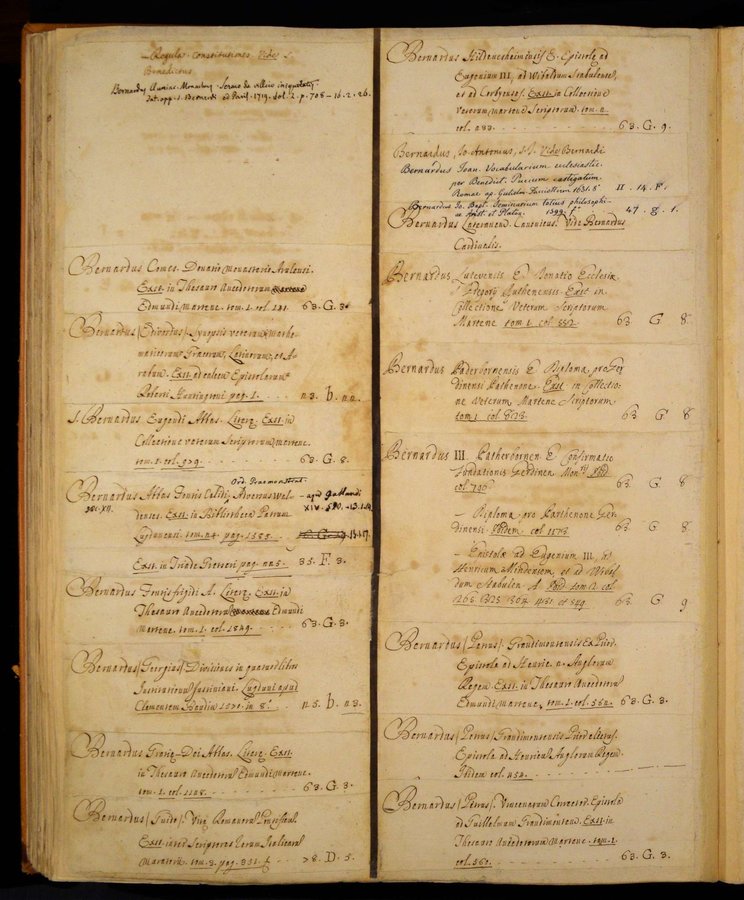 – Regula. Constitutiones. Vide S.
Benedictus.
Bernardus Monachus. Sermo de villico iniquitatis
int. opp. S. Bernardi ed. Paris. 1719. vol. 2. p. 708 – 16. 2. 26.
Bernardus Comes. Donatio Monasterio
Exst. in Thesauro Anecdotorum
Edmundi Martene. tom. 1. col. 63. G. 3.
Bernardus (Edvardus) Synopsis veterum Mathe-
maticorum Graecorum, Latinorum, et A-
rabum. Exst. ad calcem Epistolarum
Roberti Huntingtoni pag. 1. b.
S. Bernardus Eugendi Abbas. Exst. in
Collectione veterum Scriptorum, Martene.
tom. 1. col. 63. G. 8.
Ord. Praemonstrat.
Bernardus Abbas Fontis Calidi, Adversus Wal- – apud Gallandi
saec. XII. denses. Exst. in Bibliotheca Patrum XIV.
Lugdunensi. tom. 24. pag. 1585.
Exst. in Triade Gretseri pag. 35. F. 3.
Bernardus Fontis frigidi A. Exst. in
Thesauro Anecdotorum Edmundi
Martene. tom. 1. col. 1849. 63. G. 3.
Bernardus (Georgius) Divisiones in quatuor libros
Institutionum Justiniani. Lugduni apud
Clementem in 8. b.
Bernardus Gratia Dei Abbas. Exst.
in Thesauro Anecdotorum Edmundi Martene.
tom. 1. col. 63. G. 3.
Bernardus (Guido) Vitae Romanorum Pontificum
Exst. inter Scriptores Rerum Italicarum
Muratorii. tom. 3. pag. 351. D. 5.
Bernardus Hildesheimensis E. Epistolae ad
Eugenium III, ad Wibaldum Stabulensem,
et ad Corbejenses. Exst. in Collectione
Veterum, Martene Scriptorum. tom. 2.
col. 63. G. 9.
Bernardus, Jo. Antonius, S. J. Vide Bernardi
Bernardus Joan. Vocabularium ecclesiastic.
per Benedict. Puccium castigatum
Romae ap. Gulielm. Facciottum 1631. 8° II. 14. F.
Bernardus Jo. Bapt. Seminarium totius philosophi-
ae Arist. et Platon. 1599. f° 47. g. 1.
Bernardus Lateranens. Canonicus. Vide Bernardus
Cardinalis.
Bernardus Lutevensis E. Donatio Ecclesiae
Exst in
Collectione Veterum Scriptorum
Martene tom 1. col 63 G 8
Bernardus Paderbornensis E Diploma pro Ger
dinensi Parthenone. Exst in Collectio-
ne Veterum Martene Scriptorum
tom 1. col. 63 G 8
Bernardus III. Patherbornen. E Confirmatio
Fundationis Gerdinen. Ibid
col. 796 63 G 8
– Diploma pro Parthenone Ger-
dinensi. Ibidem. col 63 G 8
– Epistolae ad Eugenium III, ad
Henricum Mindensem, et ad Wibal
dum Stabulen A Ibid tom 2 col
63 G 9
Bernardus (Petrus) Grandimontensis Ex Prior.
Epistola ad Henric. 2. Anglorum
Regem. Exst. in Thesauro Anecdotorum
Edmundi Martene, tom. 1. col. 63. G. 3.
Bernardus (Petrus) Grandimontensis Prior electus.
Epistola ad Henricum Anglorum Regem.
Ibidem col.
Bernardus (Petrus) Vincenarum Corrector. Epistola
ad Guillelmum Grandimontem. Exst. in
Thesauro Anecdotorum Martene. tom. 1.
col. 560. 63. G. 3.